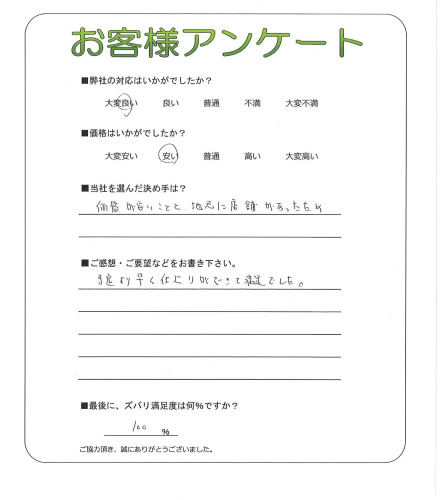 お客様アンケート
■弊社の対応はいかがでしたか？
大変良い 良い 普通 不満 大変不満
■価格はいかがでしたか？
大変安い 安い 普通 高い 大変高い
■当社を選んだ決め手は？
価格が安いことと、地元に店舗があったため
■ご感想・ご要望などをお書き下さい。
予定より早く仕上りができて満足でした。
■最後に、ズバリ満足度は何％ですか？
100 ％
ご協力頂き、誠にありがとうございました。